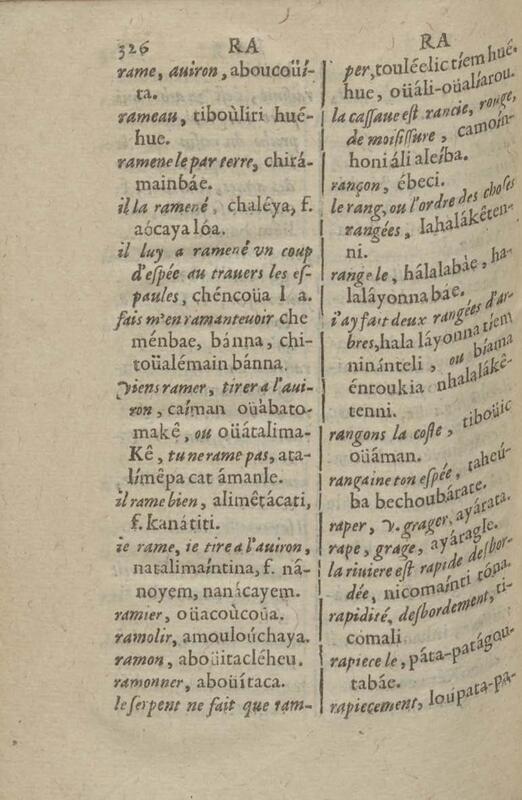 326 RA
rame, auiron, aboucoüí-
ta.
rameau, tiboùliri hué-
hue.
ramene le par terre, chirá-
mainbáe.
il la ramené, chaléya, f.
aócaya lóa.
il luy a ramené vn coup
d'espée au trauers les es-
paules, chéncoüa l a.
fais m'en ramanteuoir che
ménbae, bánna, chi-
toüalémain bánna.
Viens ramer, tirer a l'aui-
ron, caíman oüàbato-
makê, ou oüátalima-
Kê, tu ne rame pas, ata-
límêpa cat ámanle.
il rame bien, alimêtácati,
f. kanátiti.
ie rame, ie tire a l'auiron,
natalimaíntina, f. ná-
noyem, nanácayem.
ramier, oüacoùcoüa.
ramolir, amoulouchaya.
ramon, aboüitacléheu.
ramonner, aboüítaca.
le serpent ne fait que ram-
RA
per, touléelic tíem hué-
hue, oüáli-oüalíarou.
la cassaue est rancie, rouge,
de moisissure, camoín-
honiáli aleíba.
rançon, ébeci.
le rang, ou l'ordre des choses
rangées, lahalákêten-
ni.
range le, hálalabàe, ha-
laláyonna báe.
i'ay fait deux rangées d'ar-
bres, hala láyonna tíem
ninánteli, ou bíama
éntoukia nhalaláкê-
tenni.
rangons la coste, tiboüic
oüáman.
rangaine ton espée, taheú-
ba bechoubárate.
raper, v. grager, ayárata.
rape, grage, ayáragle.
la riuiere est rapide desbor-
dée, nicomaínti tóna.
rapidité, desbordement, ti-
comali
rapiece le, páta-patágou-
tabáe.
rapiecement, loupata-pa-